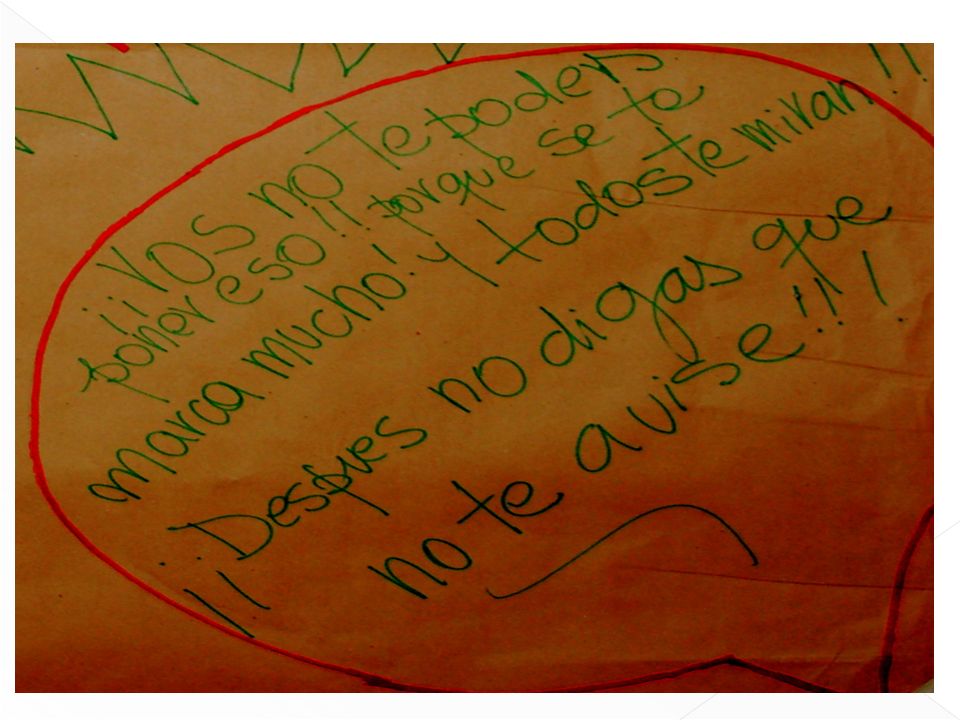 ¡¡¡VOS NO te poders
poner eso!! porque se te
marca mucho! y todos te miran!!
¡¡¡Despues no digas que
no te avise!!!!